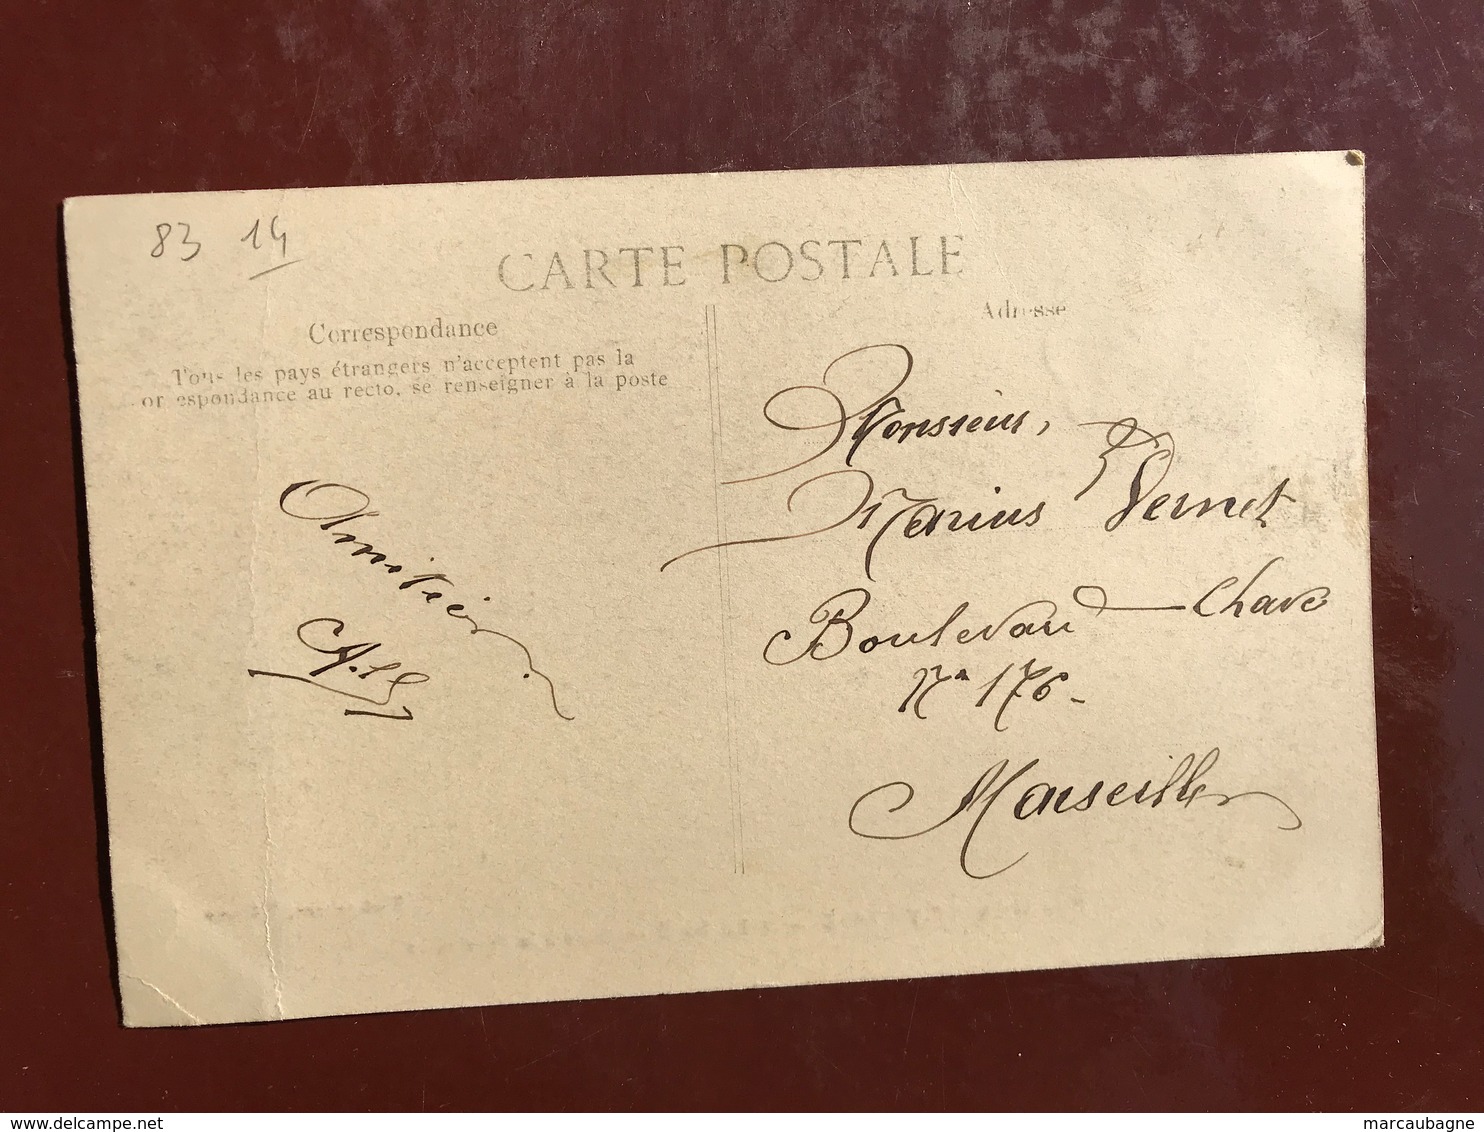 83 14
CARTE POSTALE
Correspondance
Tous les pays étrangers n'acceptent pas la
correspondance au recto, se renseigner à la poste
Amitiés
Adresse
Monsieur,
Marius Vernet
Boulevard Chave
N° 176-
Marseille
delcampe.net
marcaubagne